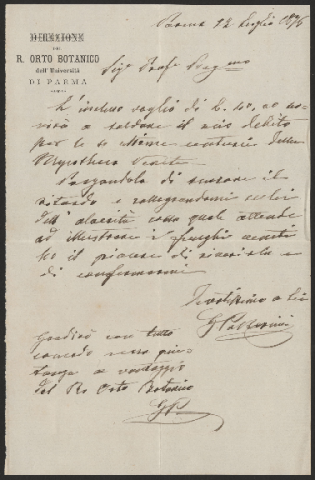 DIREZIONE
DEL
R. ORTO BOTANICO
dell'Università
DI PARMA
Parma 12 Luglio 1876
Sigr Profe
L'incluso vaglia di L.
a saldare il mio debito
per le centurie della
Mycotheca
Pregandola di scusare il
ritardo e rallegrandomi con lei
dell' alacrità colla quale attende
ad illustrare i funghi
ho il piacere di riverirla e
di confermarmi
Devotissimo a lei
G Passerini
Gradirò con tutto
comodo
a vantaggio
del Ro Orto Botanico
GP